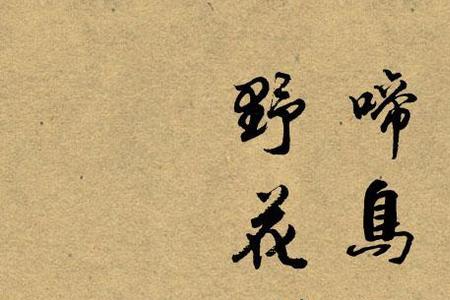 啼鳥
野花